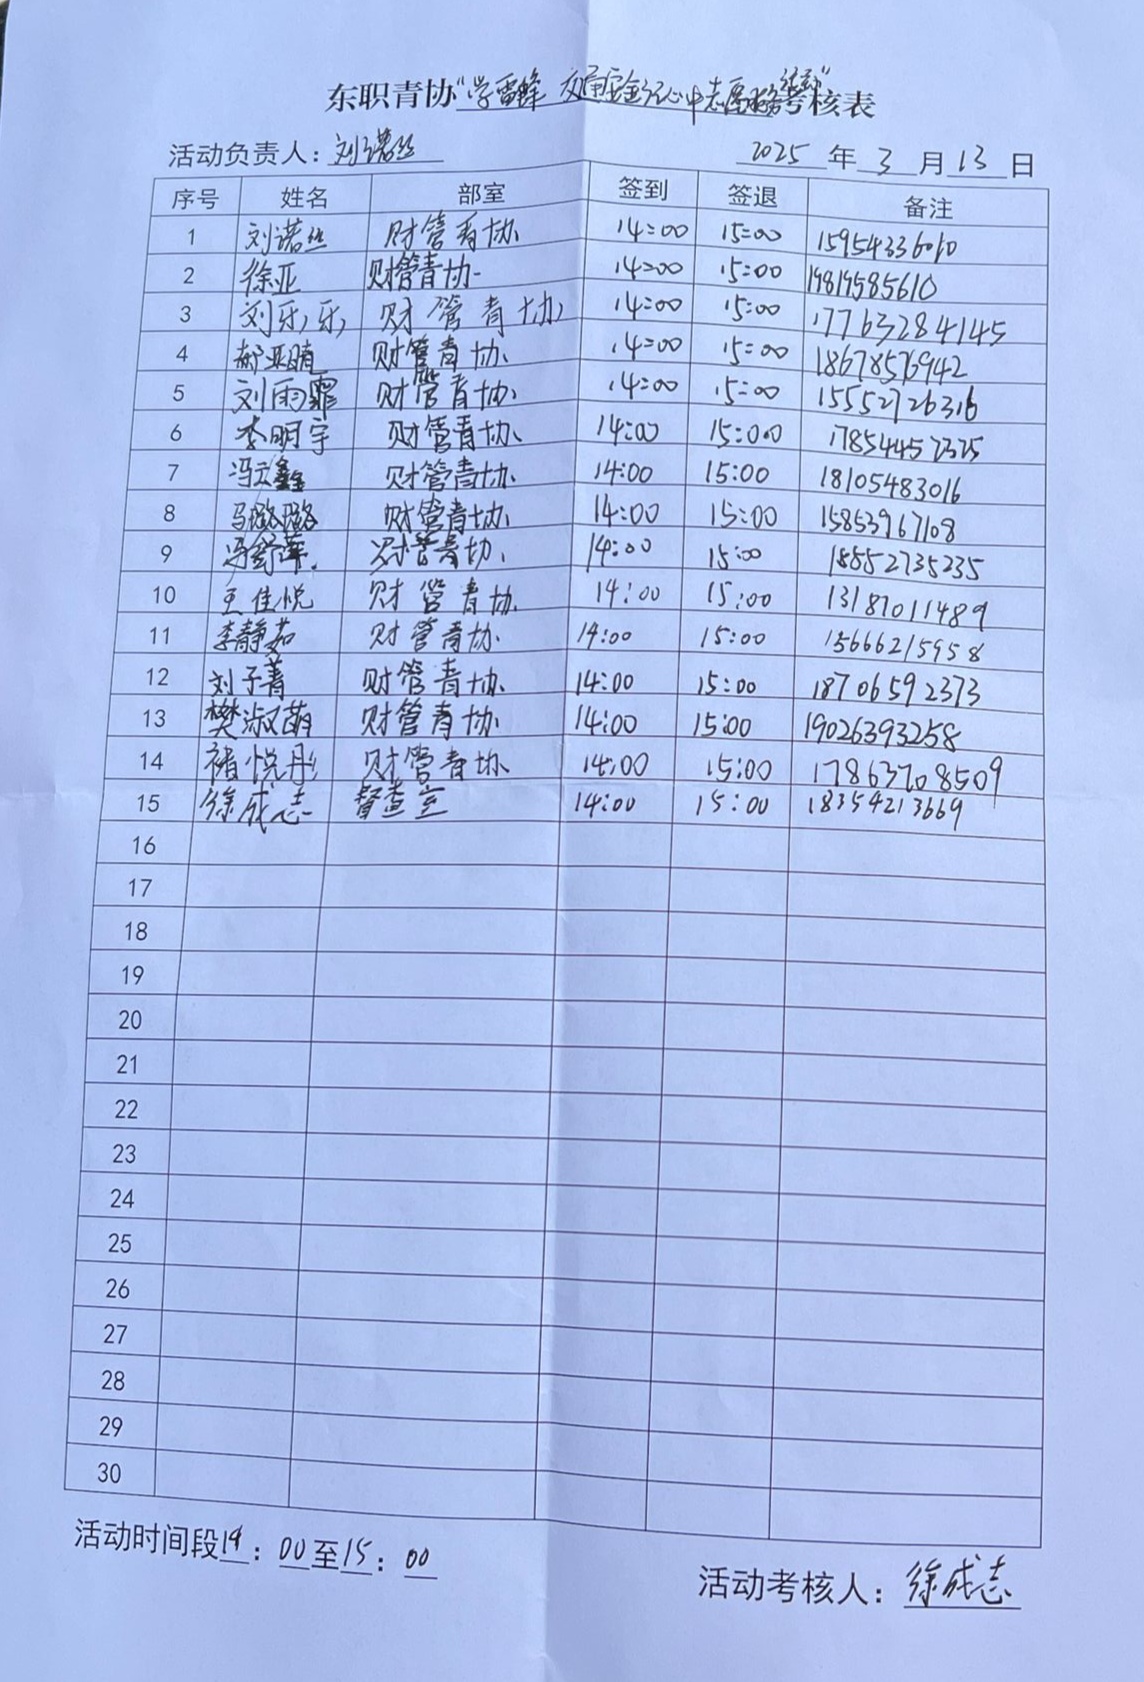 东职青协“学雷锋 交通安全记心中志愿服务活动”考核表
活动负责人：刘诺丝 2025 年 3 月 13 日
序号 姓名 部室 签到 签退 备注
1 刘诺丝 财管青协 14:00 15:00 15954336010
2 徐亚 财管青协 14:00 15:00 19819585610
3 刘乐乐 财管青协 14:00 15:00 17763284145
4 郝亚晴 财管青协 14:00 15:00 18678576942
5 刘雨霏 财管青协 14:00 15:00 15552726316
6 李明宇 财管青协 14:00 15:00 17854452325
7 冯云鑫 财管青协 14:00 15:00 18105483016
8 马璐璐 财管青协 14:00 15:00 15853967108
9 冯舒萍 财管青协 14:00 15:00 18552735235
10 王佳悦 财管青协 14:00 15:00 13187011489
11 李静茹 财管青协 14:00 15:00 15666215958
12 刘子菁 财管青协 14:00 15:00 18706592373
13 樊淑萌 财管青协 14:00 15:00 19026393258
14 褚悦彤 财管青协 14:00 15:00 17863708509
15 徐成志 督查室 14:00 15:00 18354213669
16
17
18
19
20
21
22
23
24
25
26
27
28
29
30
活动时间段14：00至15：00
活动考核人：徐成志